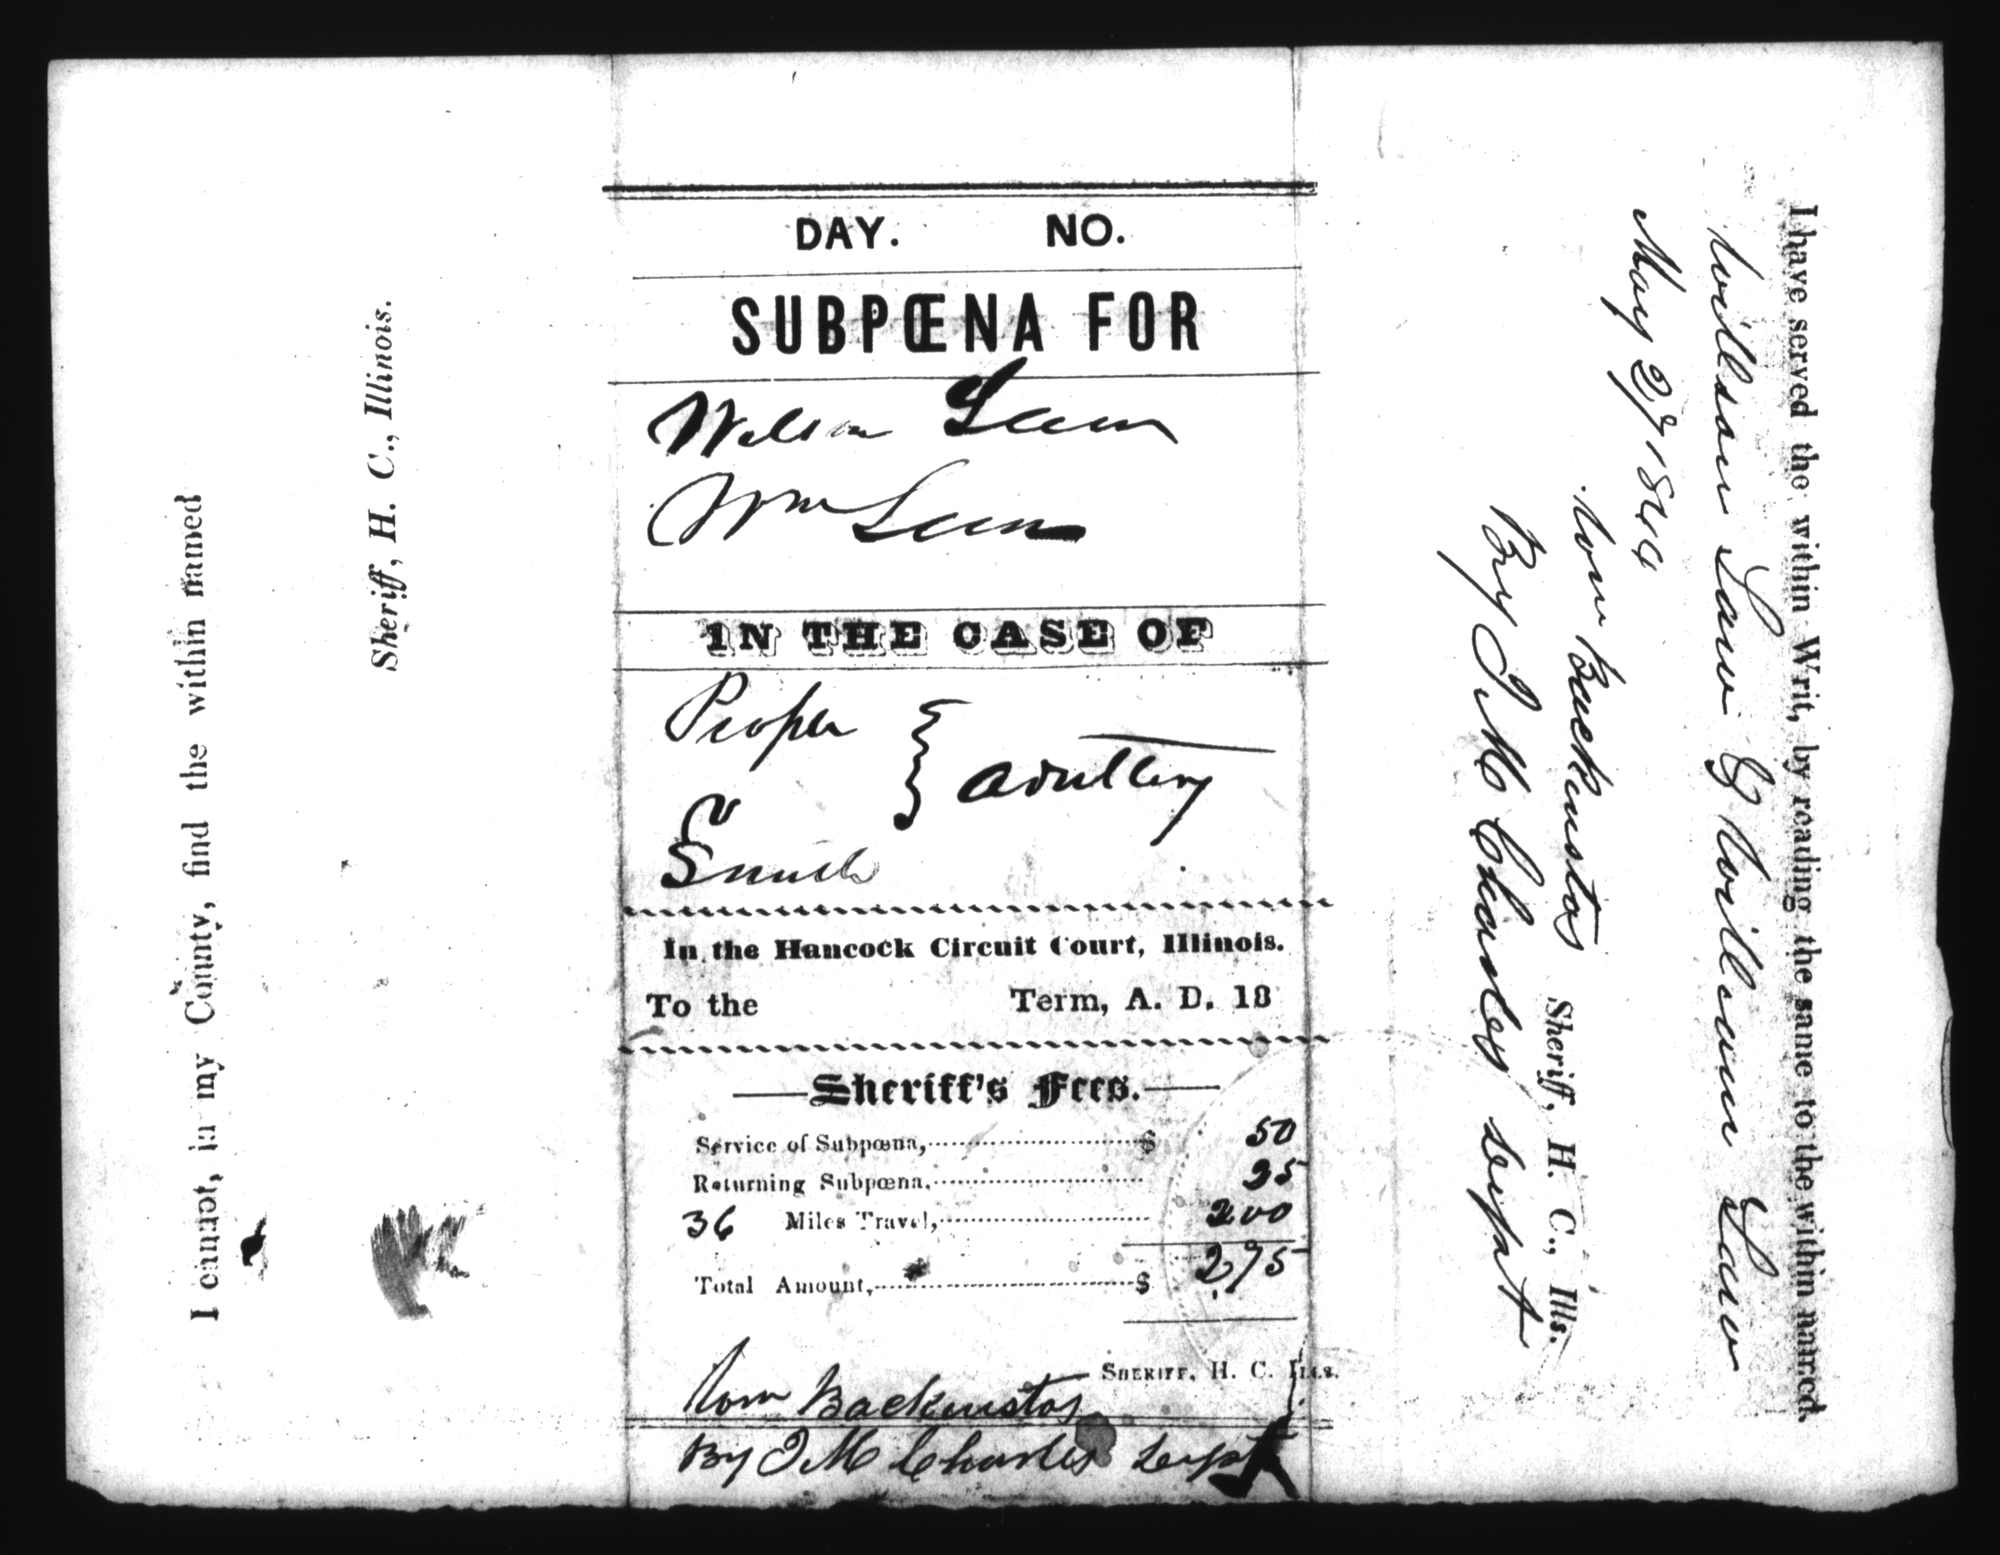 I cannot, in my County, find the within named
Sheriff, H. C., Illinois.
DAY. NO.
SUBPŒNA FOR
Wilson Law
Wm Law
IN THE CASE OF
People
vs
Smith
} Adultery
In the Hancock Circuit Court, Illinois.
To the Term, A. D. 18
Sheriff's Fees.
Service of Subpœna, $ 50
Returning Subpœna, 25
36 Miles Travel, 200
Total Amount, $ 2,75
Sheriff, H. C. Ills.
Wm Backenstos
By J M Charles Dept
I have served the within Writ, by reading the same to the within named.
Willson Law & William Law
May 27 1844
Wm Backenstos Sheriff, H. C., Ills.
By J M Charles Dept